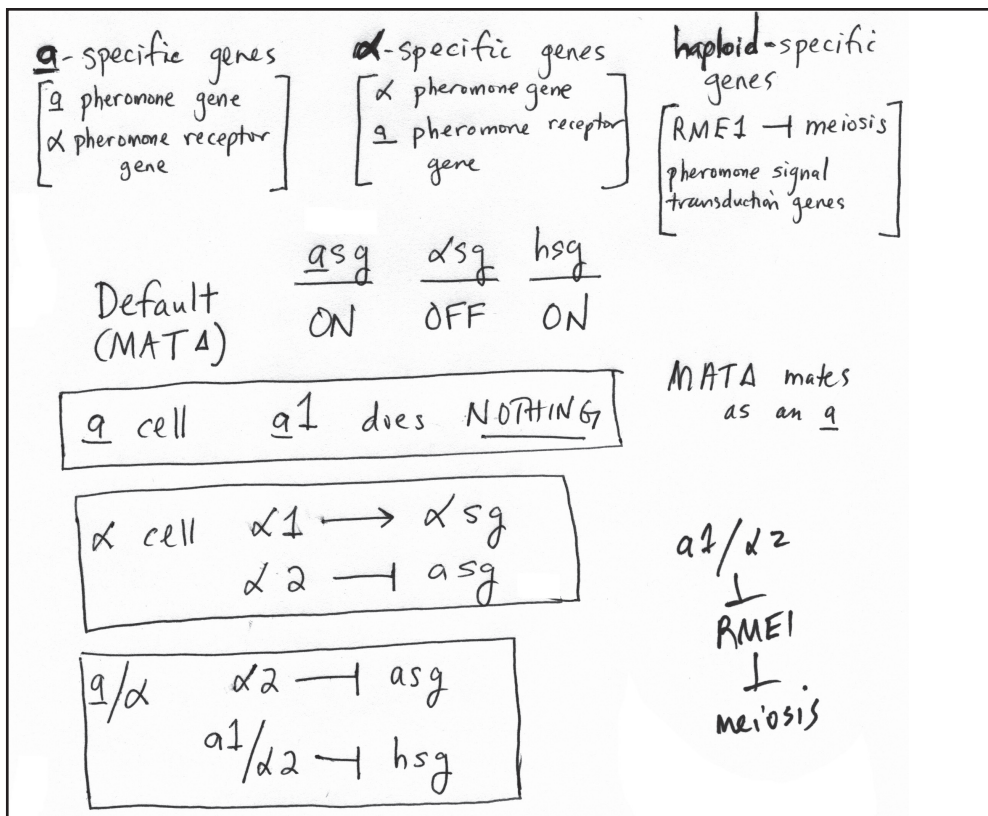 a-specific genes
[a pheromone gene
α pheromone receptor
gene]
α-specific genes
[α pheromone gene
a pheromone receptor
gene]
haploid-specific
genes
[RME1 ⊣ meiosis
pheromone signal
transduction genes]
asg αsg hsg
Default
(MATΔ)
ON OFF ON
MATΔ mates
as an a
a cell a1 does NOTHING
α cell α1 → αsg
α2 ⊣ asg
a/α α2 ⊣ asg
a1/α2 ⊣ hsg
a1/α2
⊥
RME1
⊥
meiosis